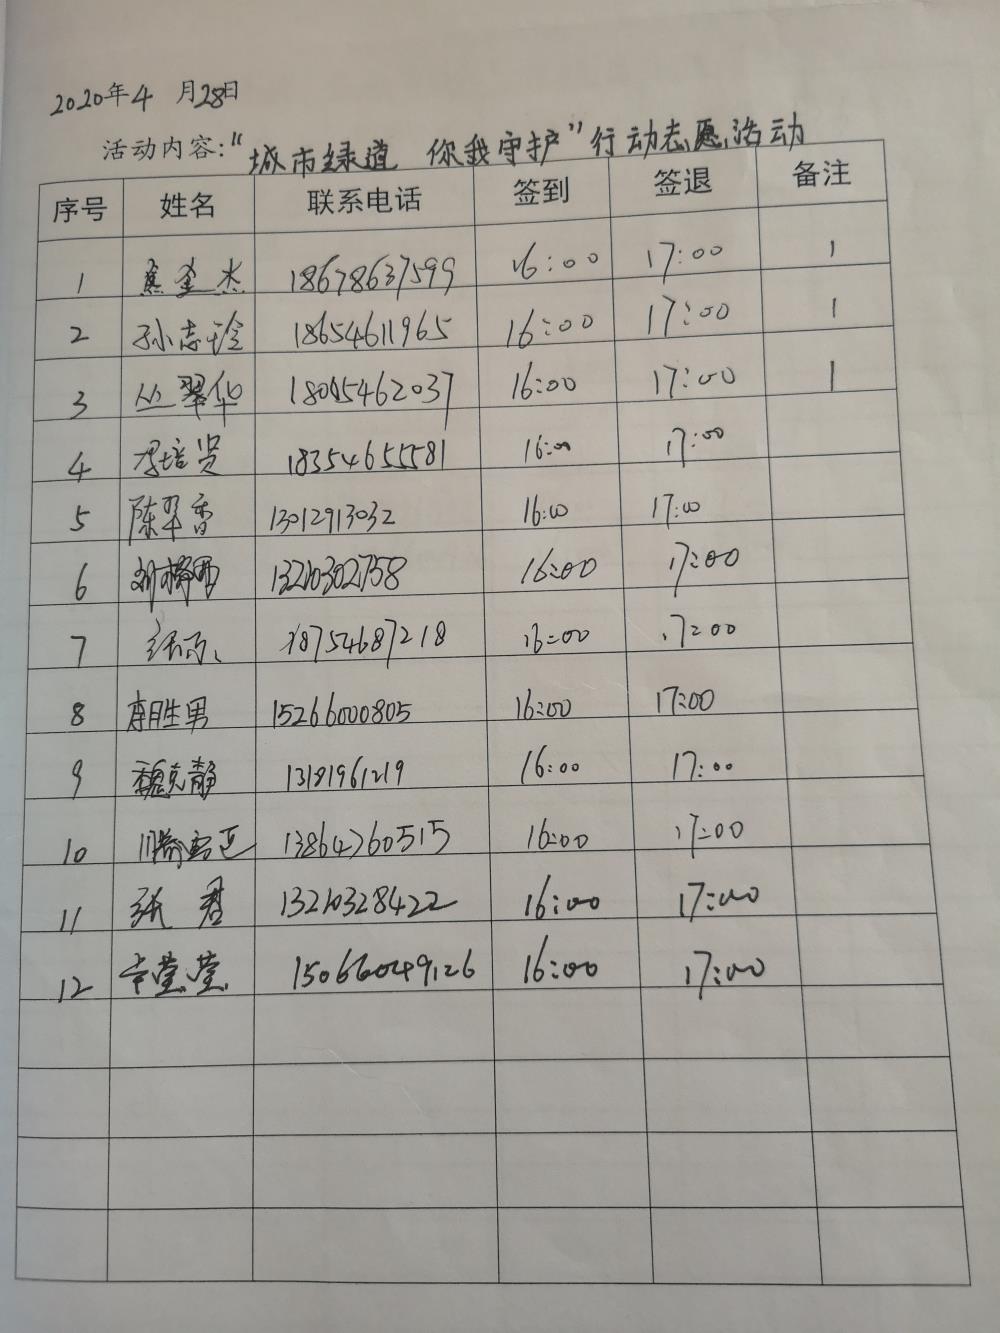 2020年4月28日
活动内容:“城市绿道 你我守护”行动志愿活动
序号 姓名 联系电话 签到 签退 备注
1 杰 18678637599 16:00 17:00 1
2 孙志玲 18654611965 16:00 17:00 1
3 丛翠华 16:00 17:00 1
4 培 18354655581 16:00 17:00
5 陈翠香 13012913032 16:00 17:00
6 刘 13210302758 16:00 17:00
7 18754687218 16:00 17:00
8 胜男 15266000805 16:00 17:00
9 魏克静 13181961219 16:00 17:00
10 13864760515 16:00 17:00
11 张君 13210328422 16:00 17:00
12 莹莹 15066049126 16:00 17:00